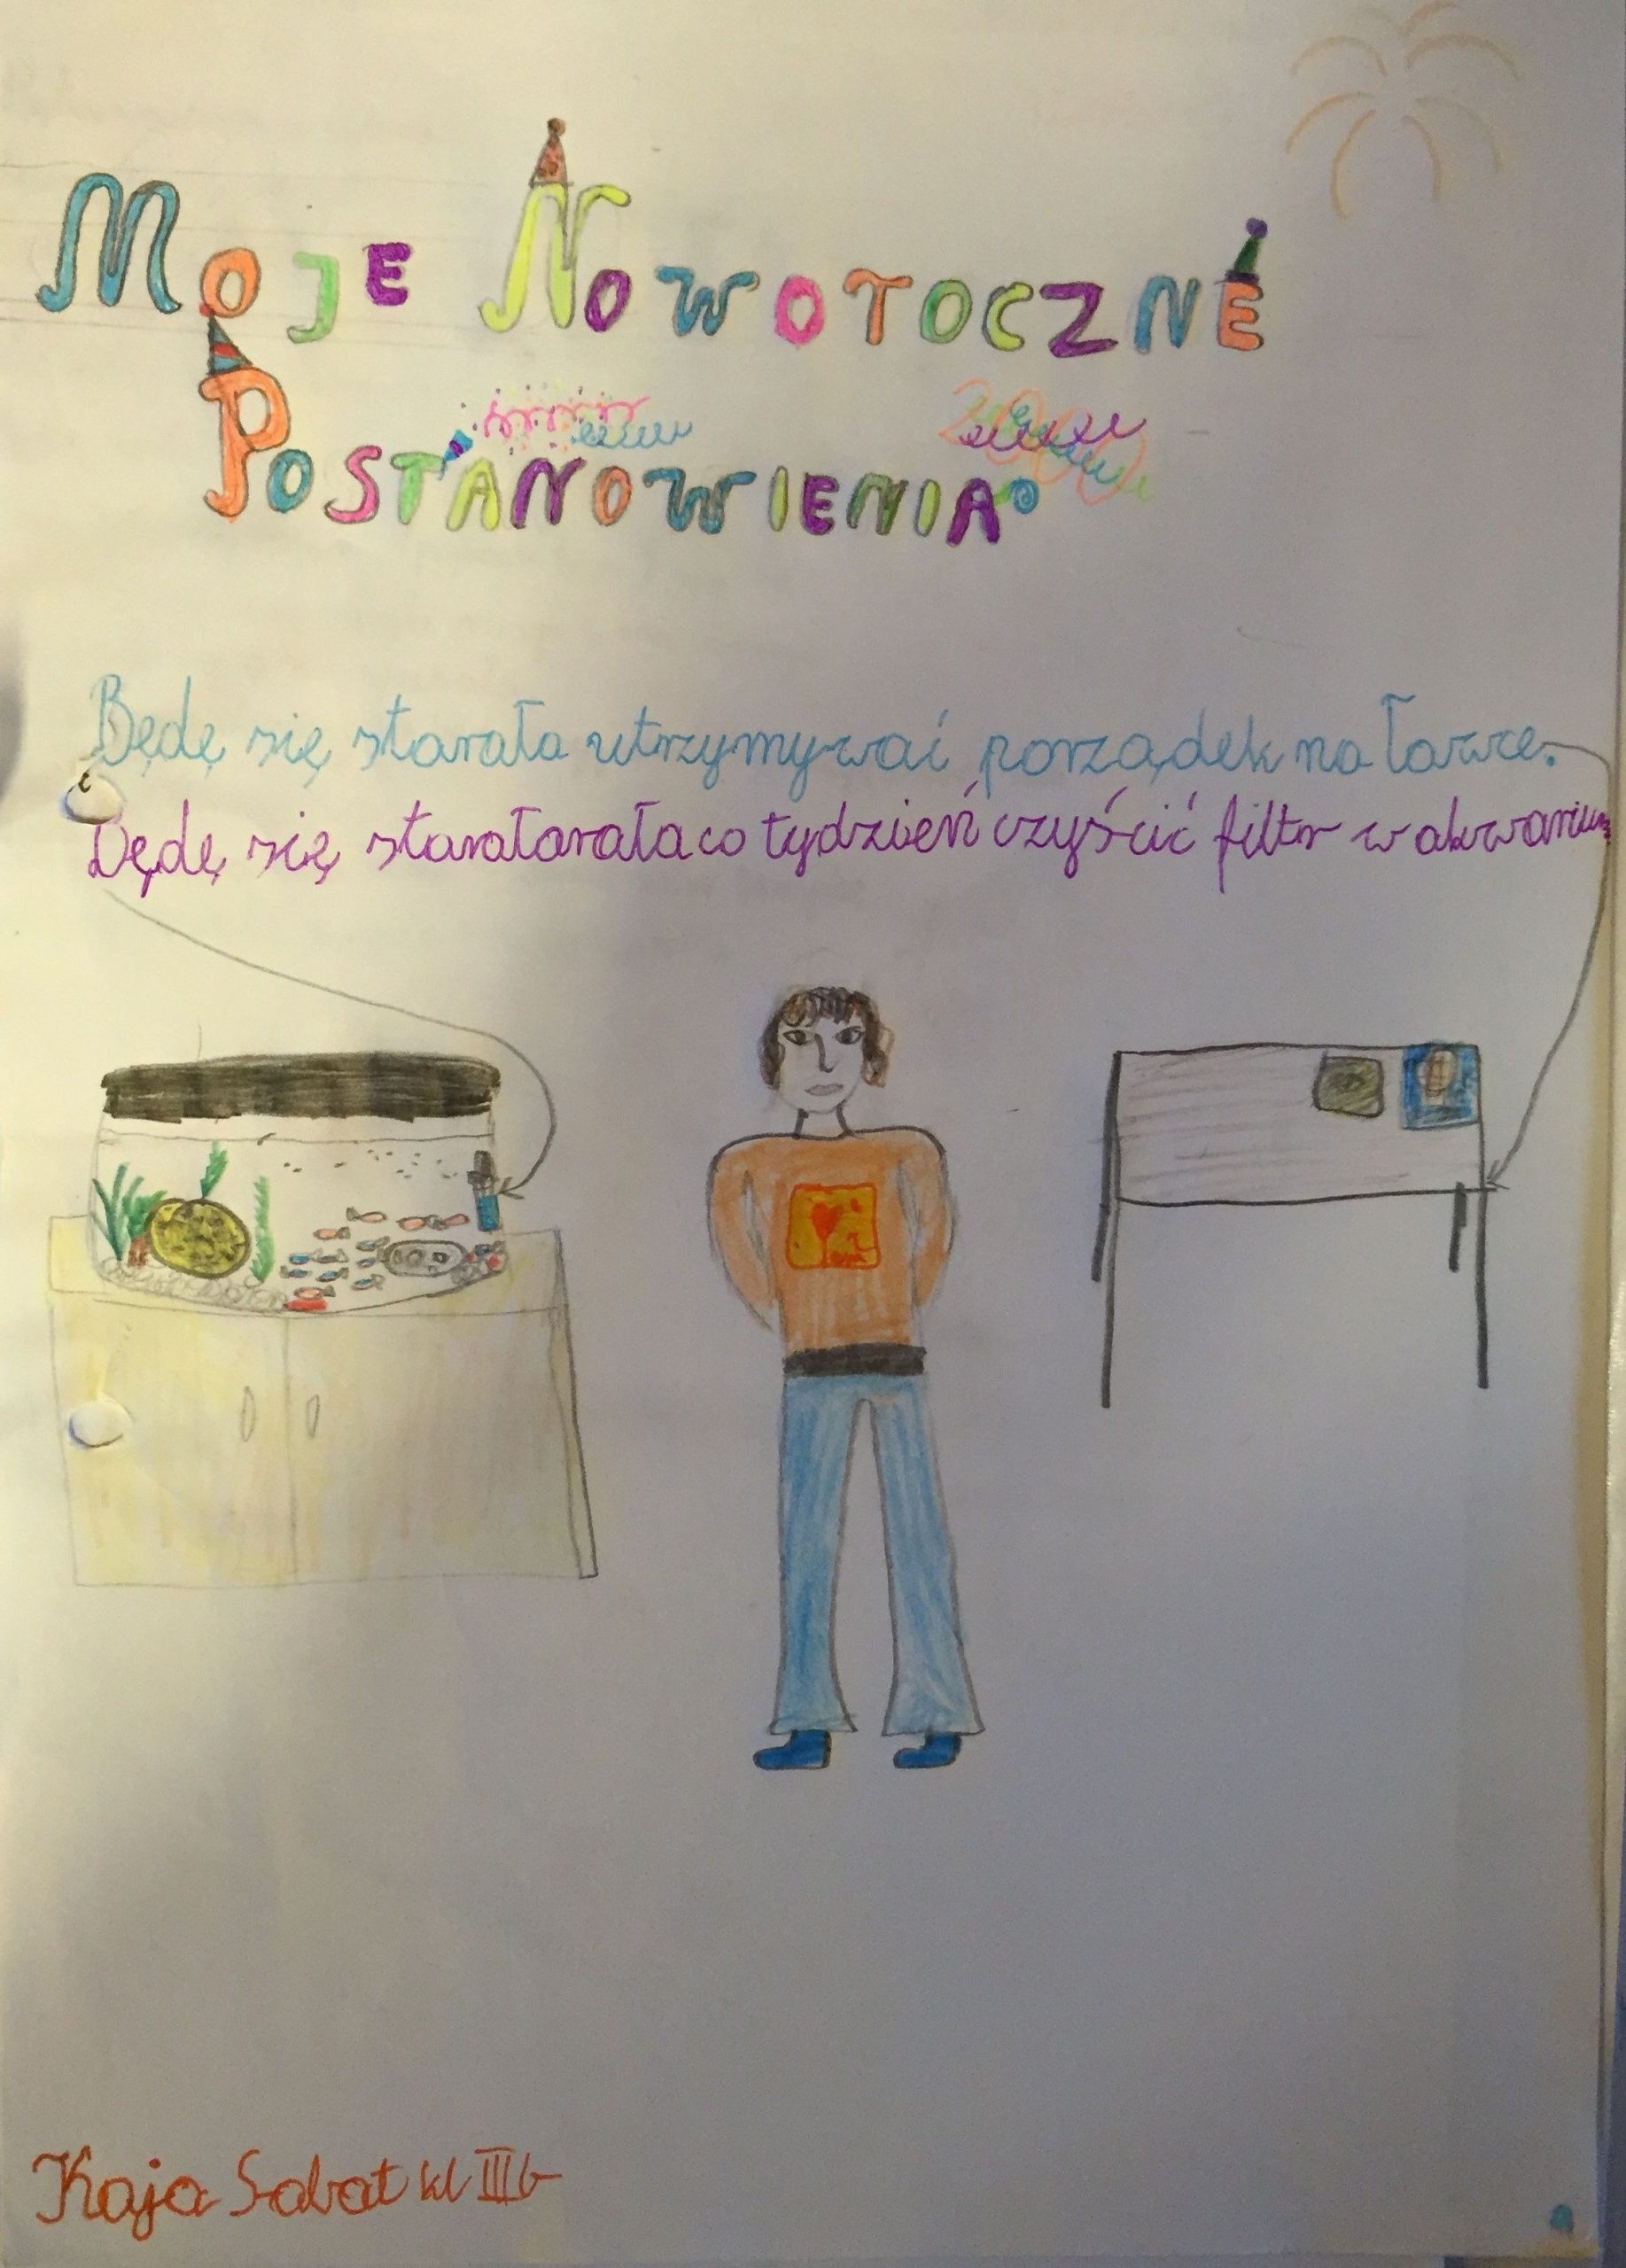 Moje Nowotoczne
Postanowienia
Będę się starała utrzymywać porządek na ławce.
Będę się staratarała co tydzień czyścić filtr w akwarium
Kaja Sabat kl III b